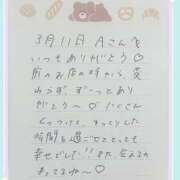 3月11日 Aさん
いつもありがとう♡
前のお店の時から、変
わらず、ずーっとあり
がとう〜♡
くっついて、まったりした
時間を過ごせてとっても
幸せでした!!また、会えるの
まってるね〜♡